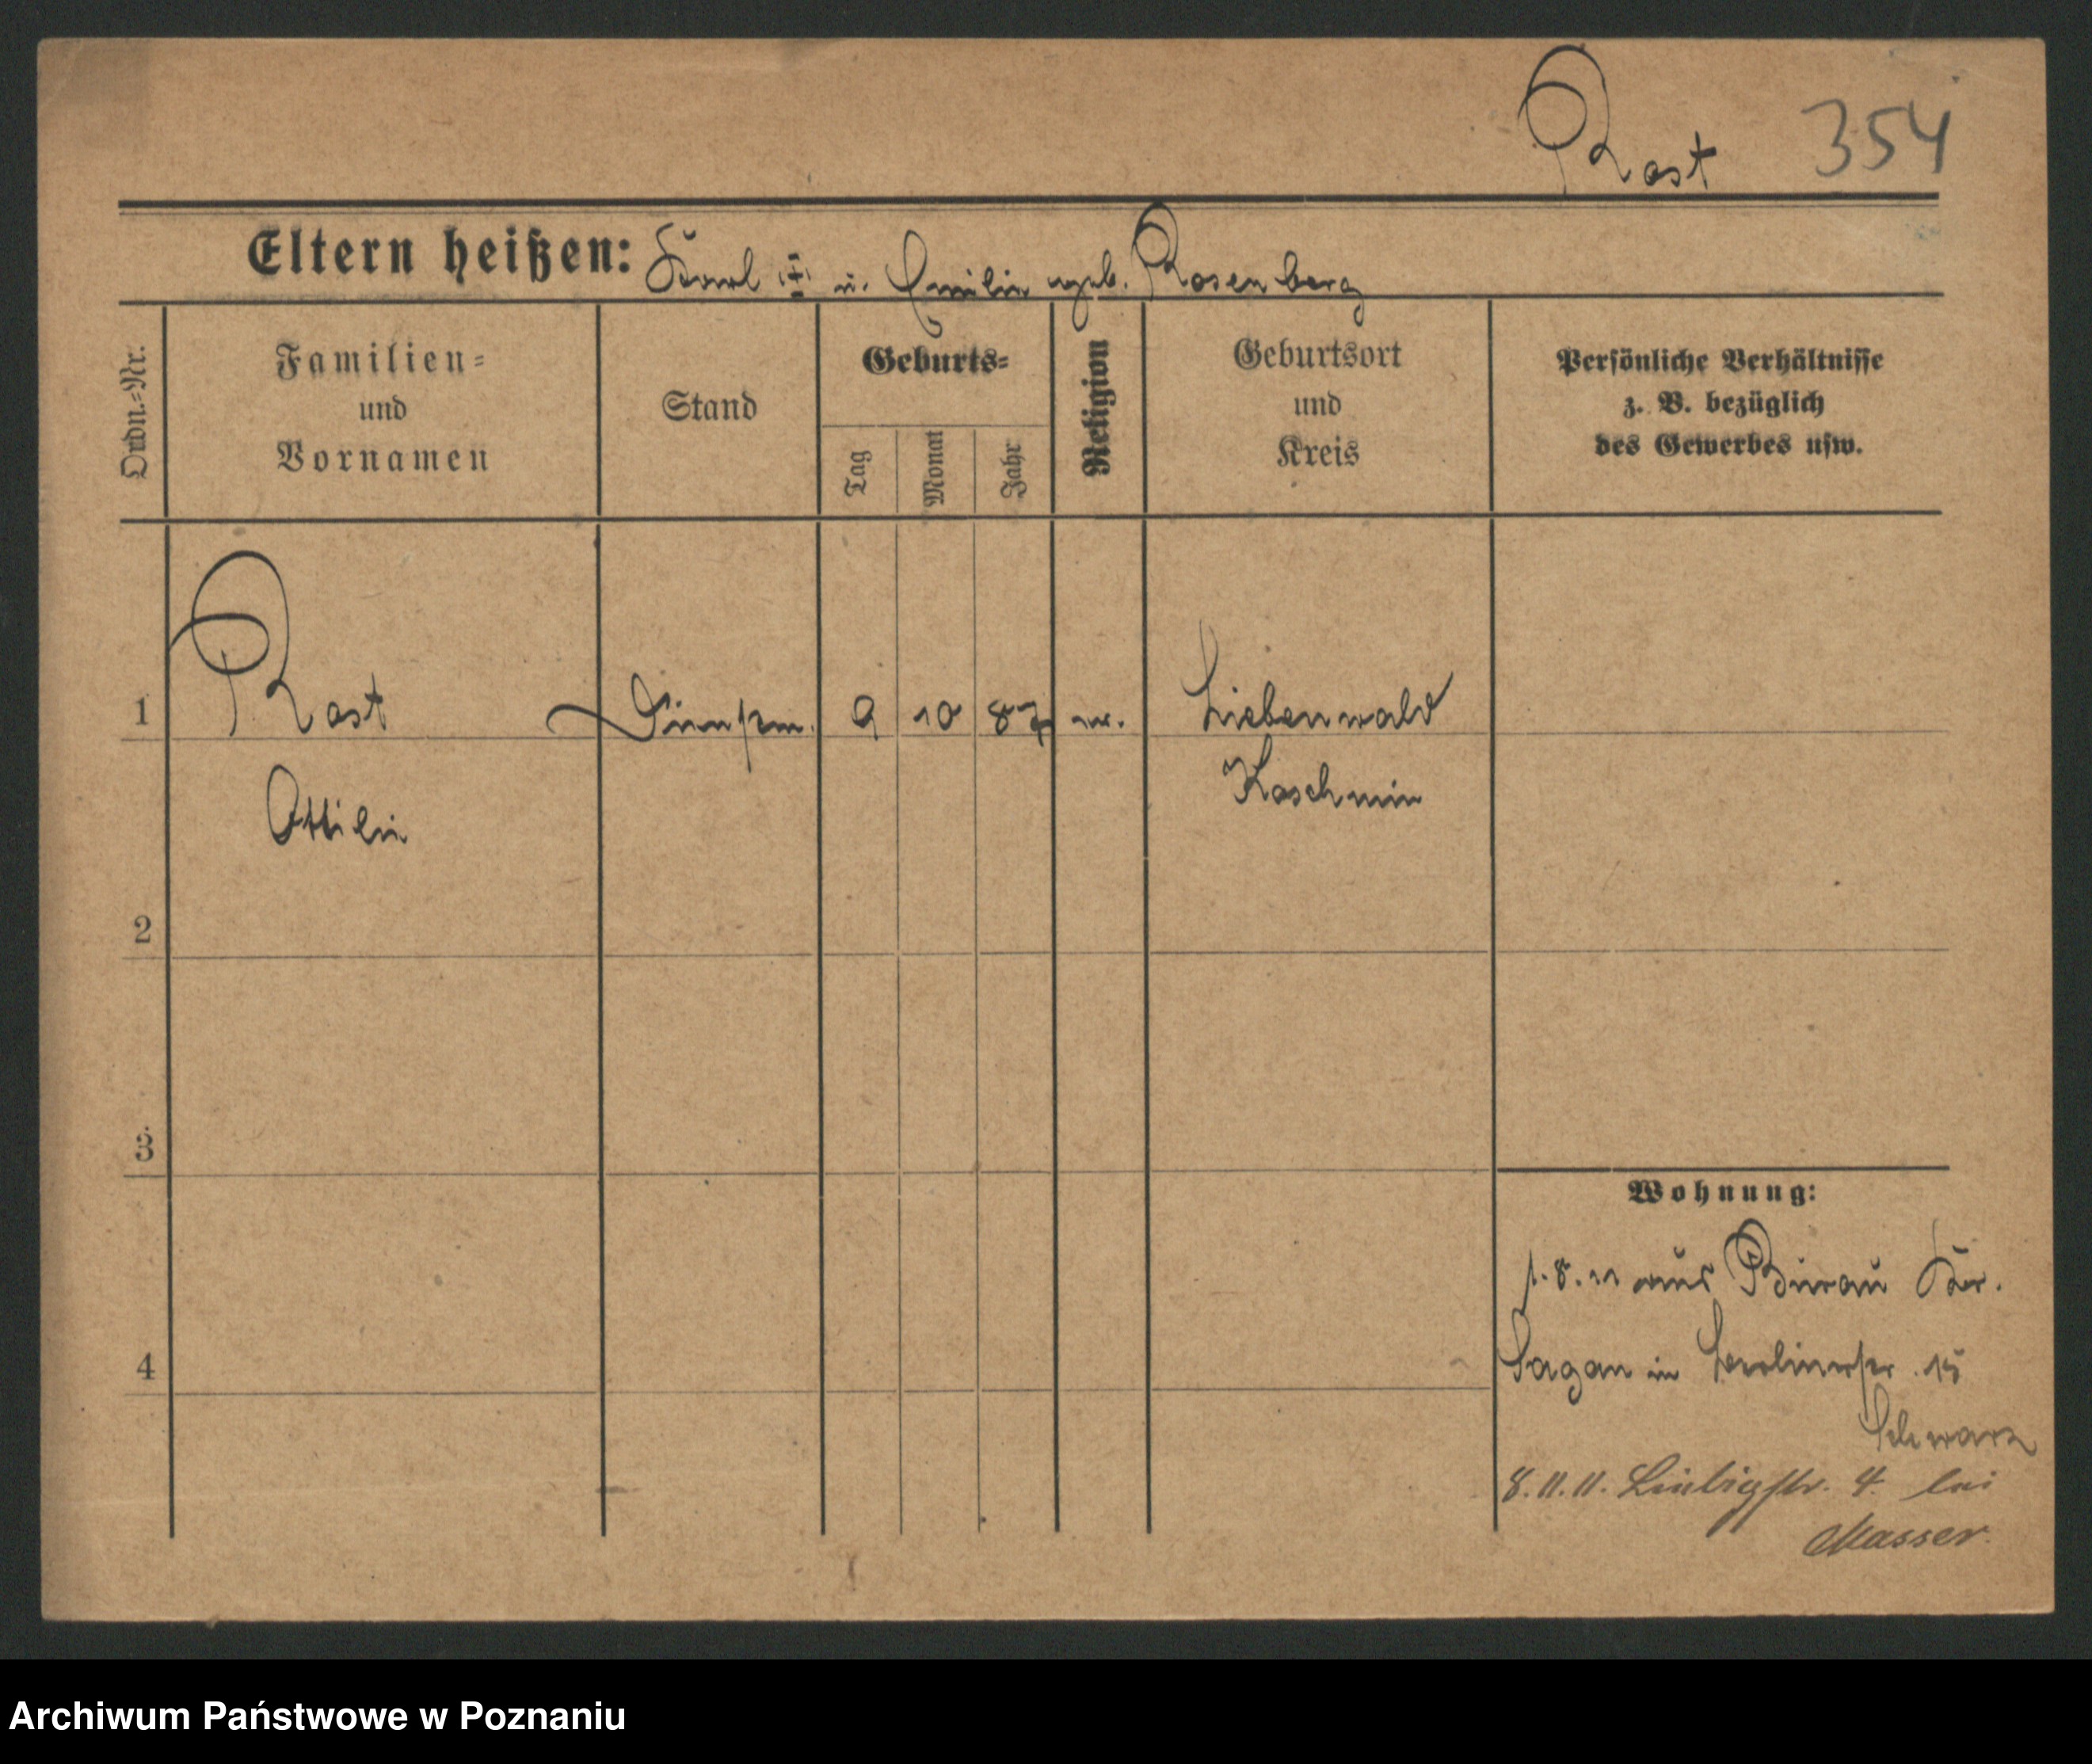 Rast 354
Eltern heißen: Karl ‡ u. Emilie geb. Rosenberg
Ordn.-Nr.
Familien-
und
Vornamen
Stand
Geburts-
Tag
Monat
Jahr
Religion
Geburtsort
und
Kreis
Persönliche Verhältnisse
z. B. bezüglich
des Gewerbes usw.
1 Rast 9 10 87 Liebenwald
Ottilie Koschmin
2
3
4
Wohnung:
1.8.11 aus Burau Kr.
Sagan in Berlinerstr. 15
Schwarz
8.11.11. Liebigstr. 4. bei
Masser.
Archiwum Państwowe w Poznaniu